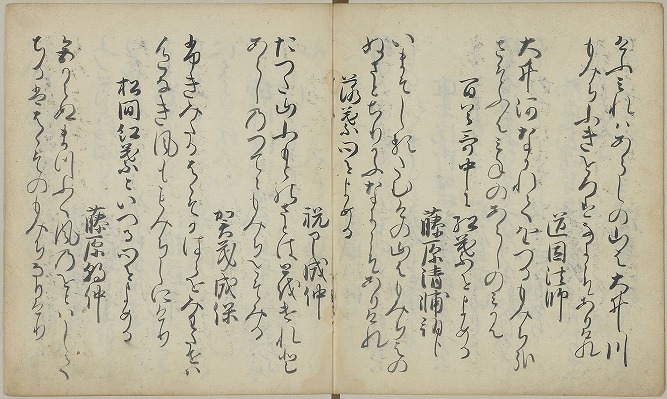 けふみれはあらしの山は大井川
もみちふきおろすなにこそありけれ
道因法師
大井河なかれておつるもみちかな
さそふはみねのあらしのみかは
百首哥中に紅葉をよめる
藤原清輔朝臣
いまそしるたむけの山はもみちはの
ぬさとちりかふなにこそありけれ
落葉の心をよめる
祝部成仲
たつた山ふもとのさとはとほけれと
あらしのつてにもみちをそみる
賀茂成保
ふきみたるははそかはらをみわたせは
いろなき風ももみちしにけり
松間紅葉といへる心をよめる
藤原朝仲
色かへぬまつふく風のをとはして
ちるはははそのもみちなりけり